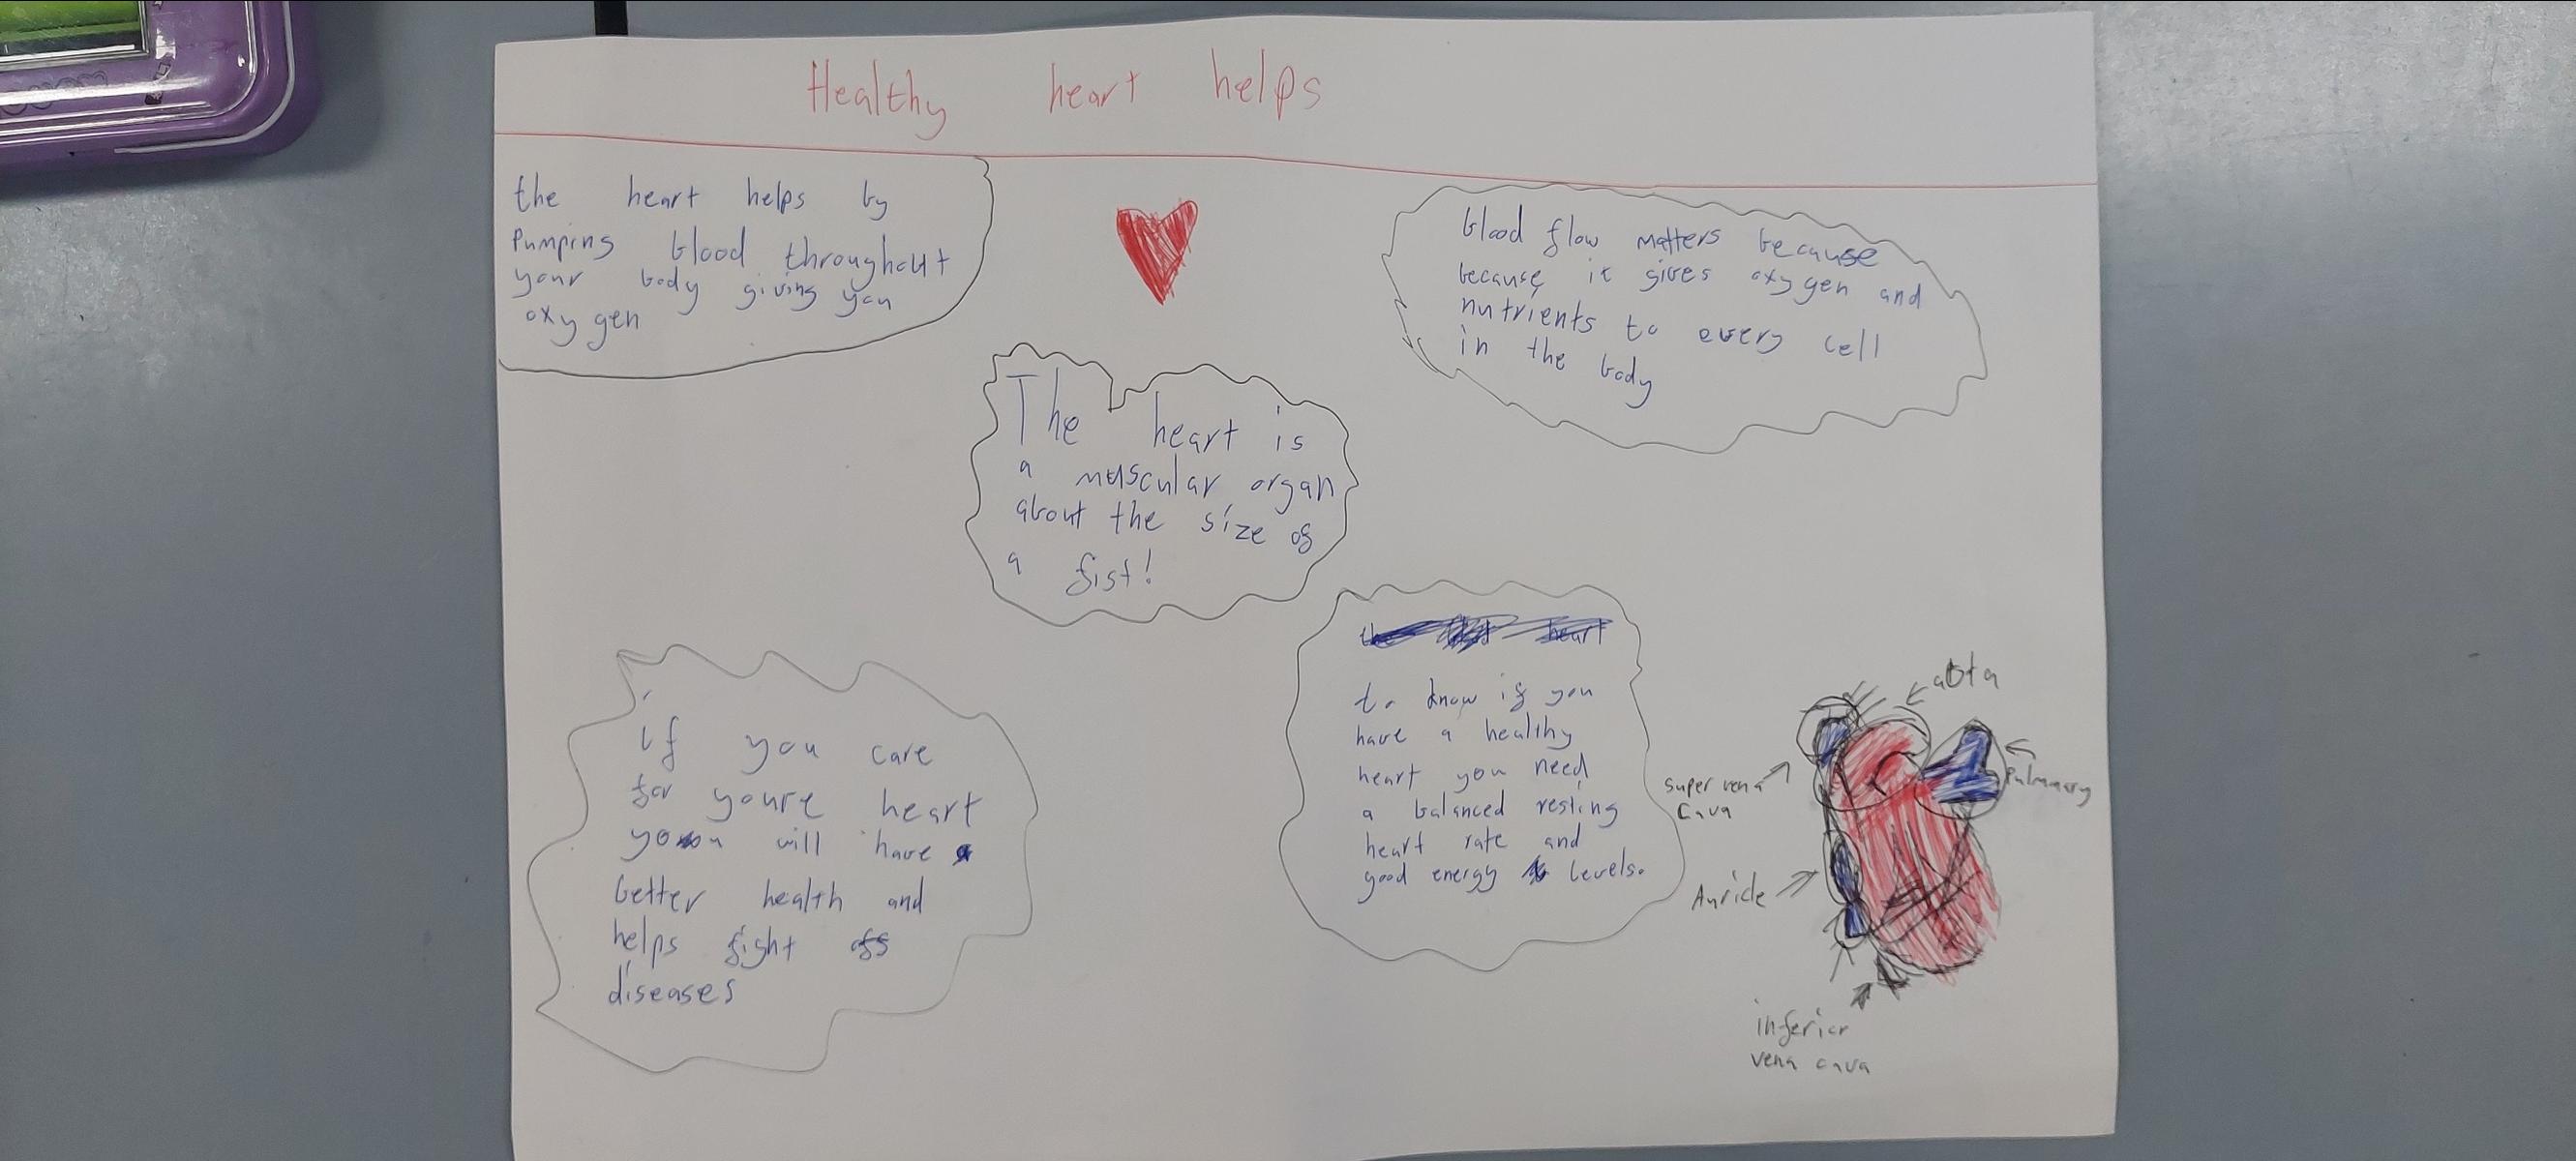 Healthy heart helps
the heart helps by
Pumping blood throughout
your body giving you
oxygen
blood flow matters because
because it gives oxygen and
nutrients to every cell
in the body
The heart is
a muscular organ
about the size of
a fist!
if you care
for youre heart
you will have
better health and
helps fight off
diseases
to know if you
have a healthy
heart you need
a balanced resting
heart rate and
good energy levels.
aota
Pulmary
super vena
Cava
Auricle
inferior
vena cava